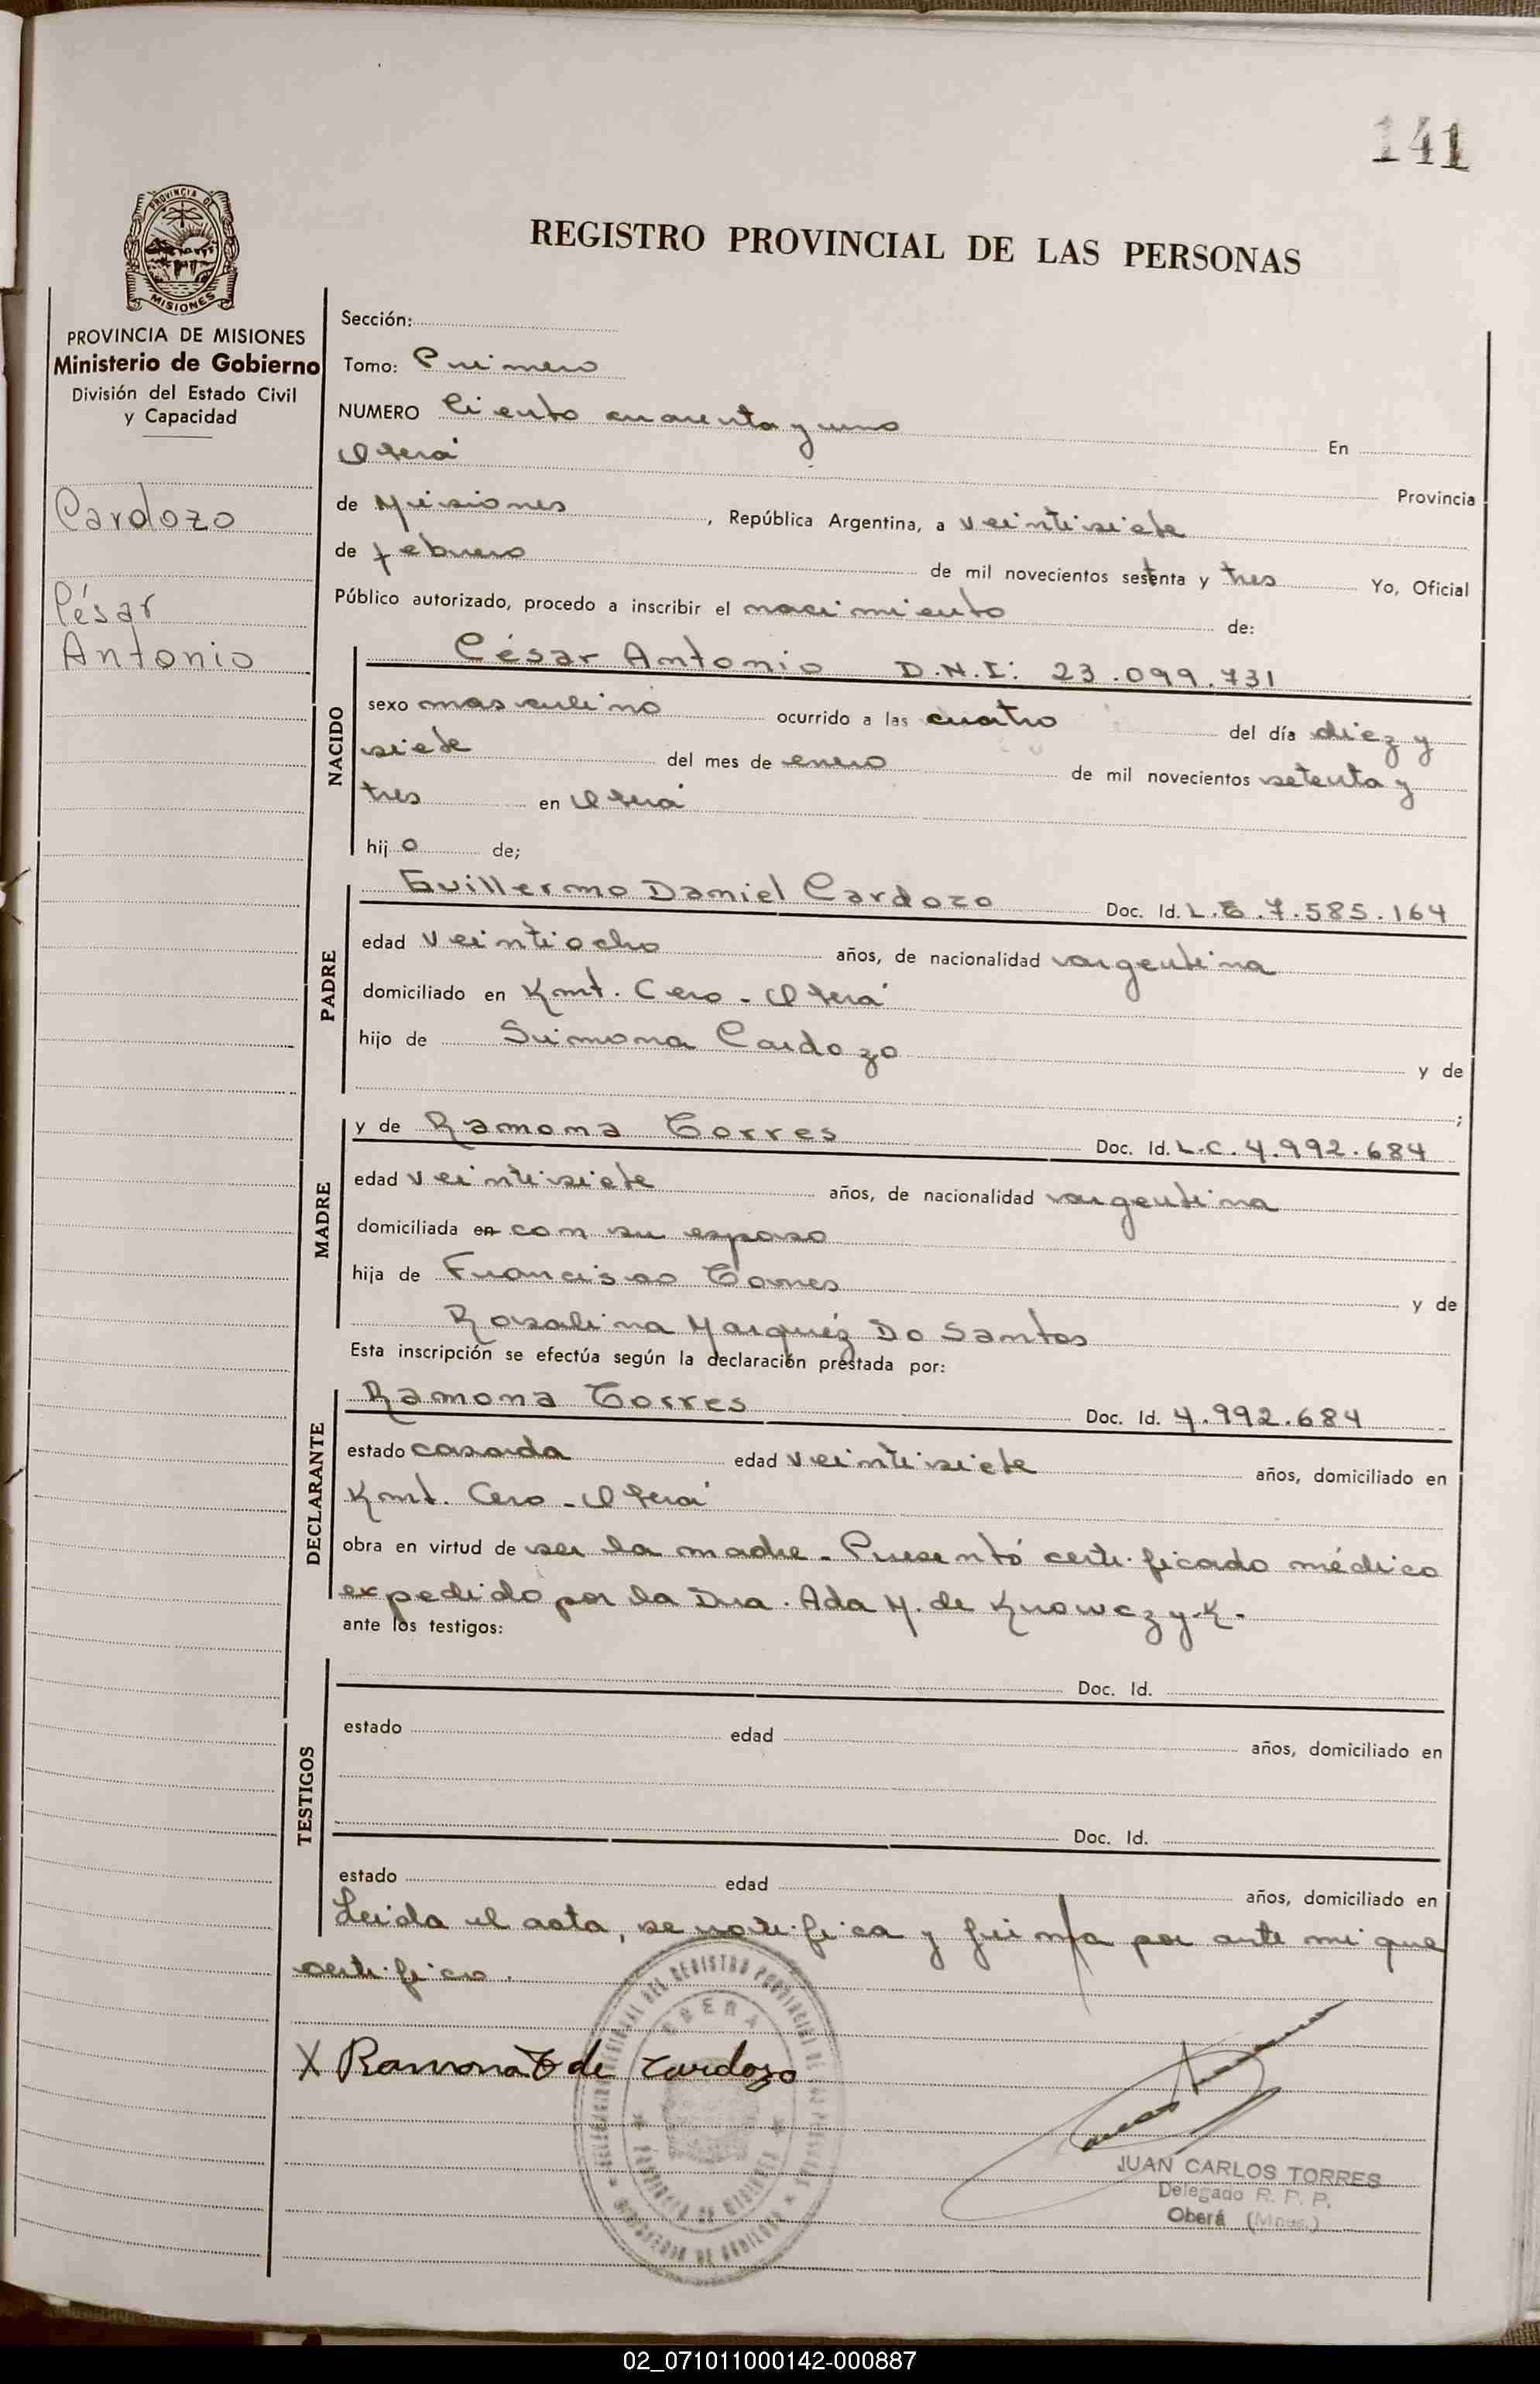 141
PROVINCIA DE
MISIONES
REGISTRO PROVINCIAL DE LAS PERSONAS
PROVINCIA DE MISIONES
Ministerio de Gobierno
División del Estado Civil
y Capacidad
Cardozo
César
Antonio
Sección:
Tomo: Primero
NUMERO Ciento cuarenta y uno En
Oberá Provincia
de Misiones, República Argentina, a veintisiete
de febrero de mil novecientos setenta y tres Yo, Oficial
Público autorizado, procedo a inscribir el nacimiento de:
NACIDO
César Antonio D.N.I: 23.099.731
sexo masculino ocurrido a las cuatro del día diez y
siete del mes de enero de mil novecientos setenta y
tres en Oberá
hijo de;
PADRE
Guillermo Daniel Cardozo Doc. Id. L.E.7.585.164
edad veintiocho años, de nacionalidad argentina
domiciliado en Kmt. Cero - Oberá
hijo de Simona Cardozo y de
;
MADRE
y de Ramona Torres Doc. Id. L.C.4.992.684
edad veintisiete años, de nacionalidad argentina
domiciliada en con su esposo
hija de Francisco Torres y de
Rosalina Marquéz Do Santos
Esta inscripción se efectúa según la declaración prestada por:
DECLARANTE
Ramona Torres Doc. Id. 4.992.684
estado casada edad veintisiete años, domiciliado en
Kmt. Cero - Oberá
obra en virtud de ser la madre - Presentó certificado médico
expedido por la Dra. Ada M. de Knowczyk.
ante los testigos:
TESTIGOS
Doc. Id.
estado edad años, domiciliado en
Doc. Id.
estado edad años, domiciliado en
Leida el acta, se notifica y firma por ante mi que
certifico.
X Ramona T de Cardozo
OBERA
PROVINCIA DE MISIONES
JUAN CARLOS TORRES
Delegado R. P. P.
Oberá (Mnes.)
02_071011000142-000887